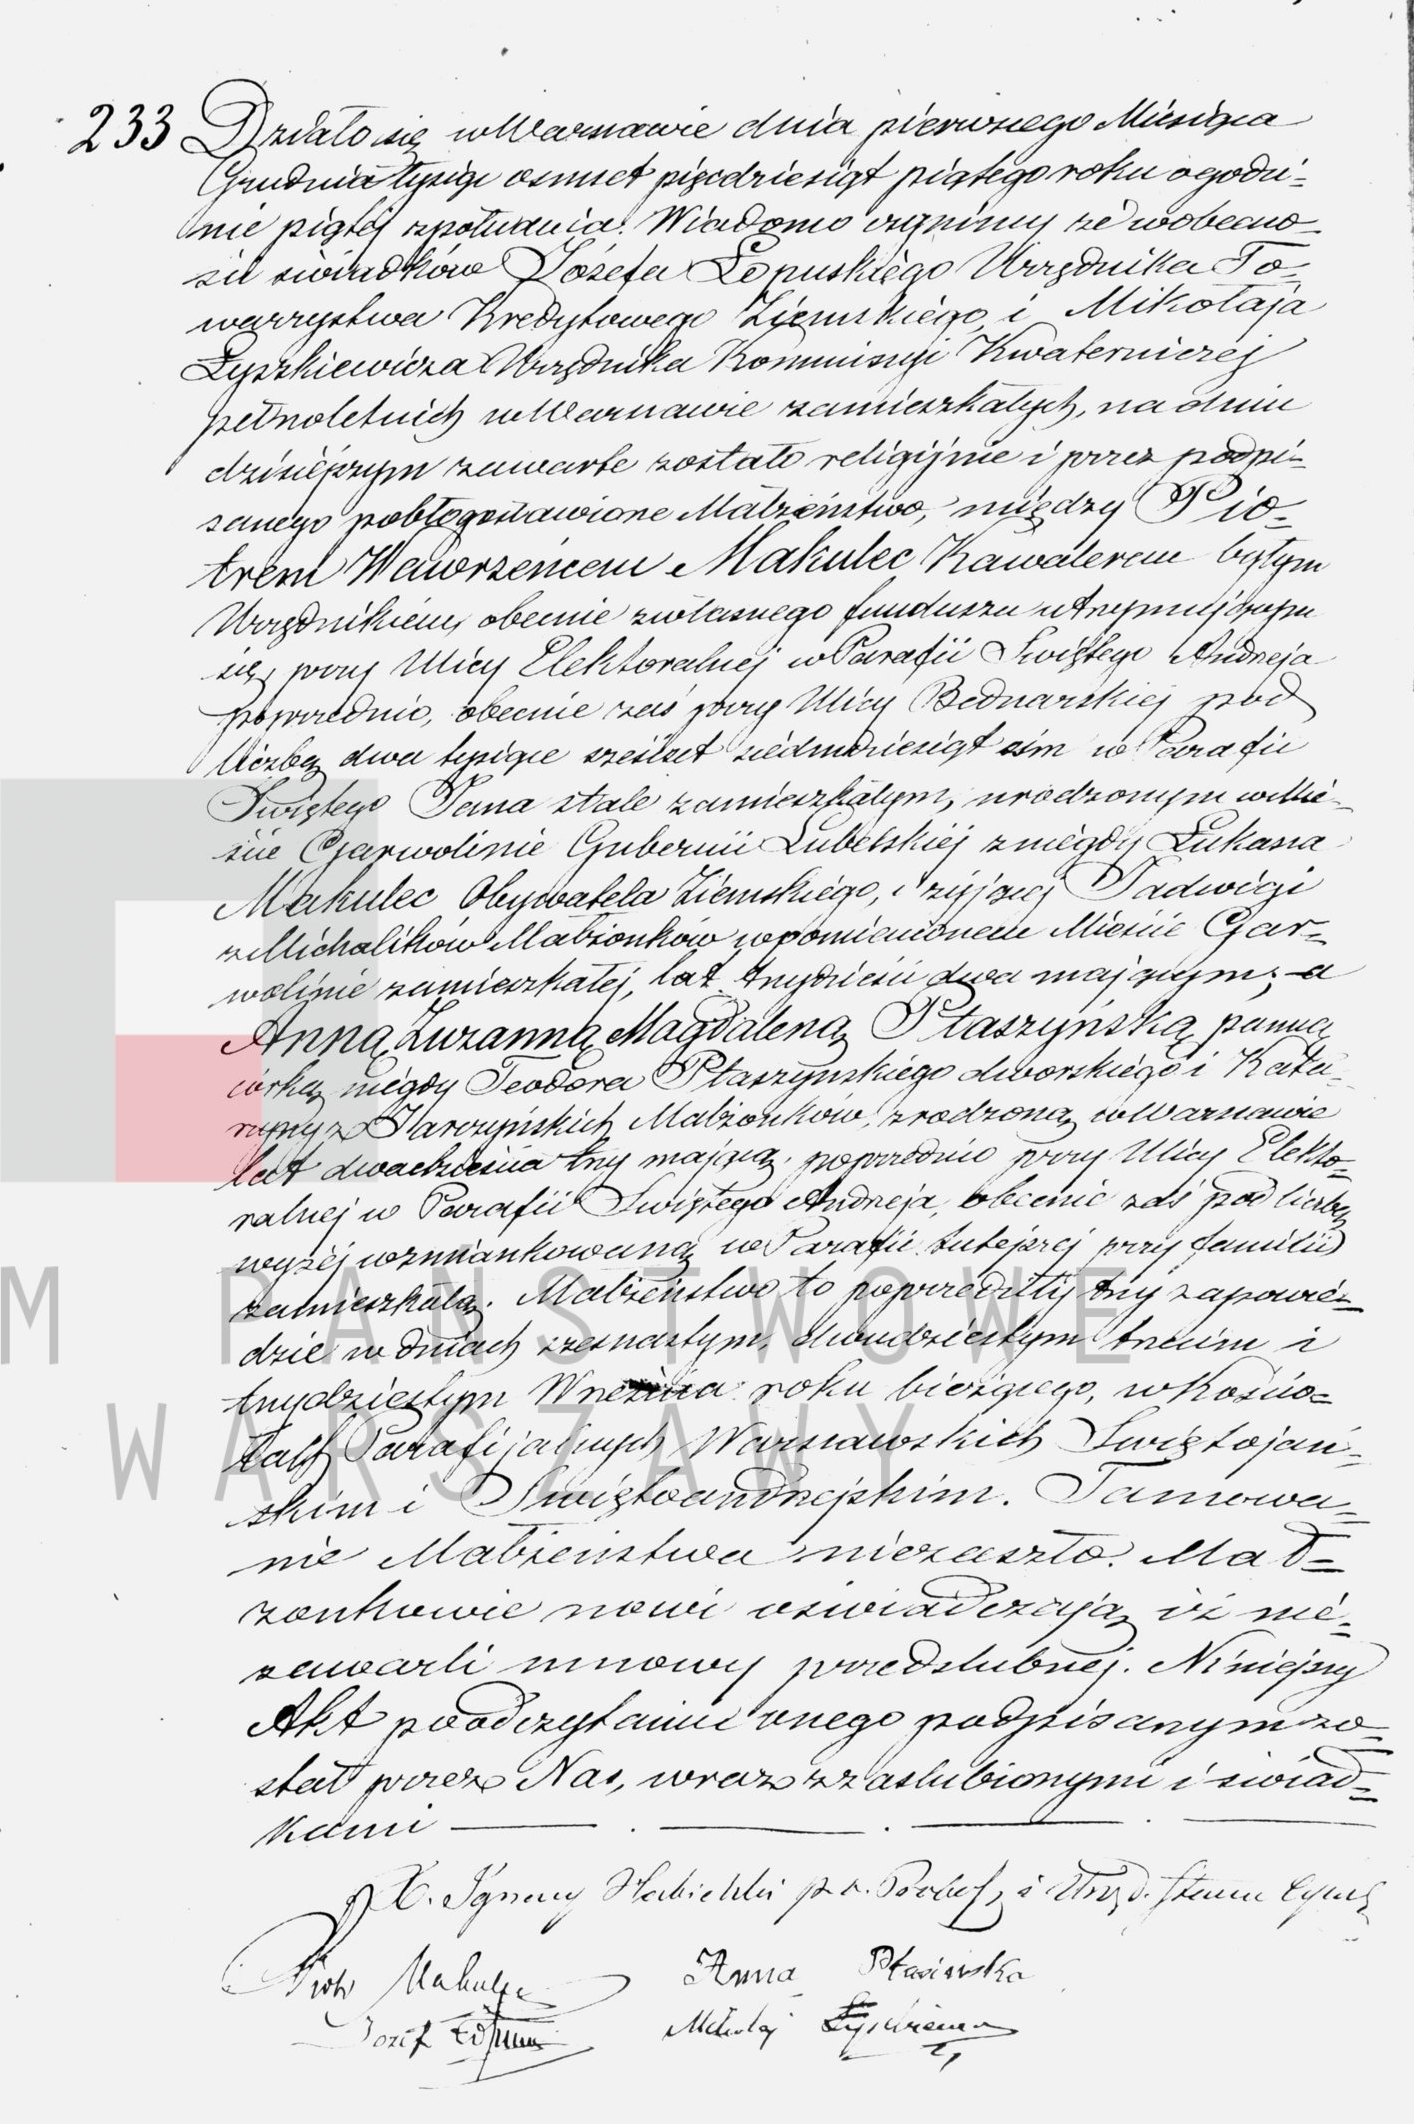 233 Działo się w Warszawie dnia pierwszego Miesiąca
Grudnia tysiąc osmset pięćdziesiąt piątego roku o godzi-
nie piątej z południa. Wiadomo czynimy że w obecno-
ści świadków Józefa Łopuskiego Urzędnika To-
warzystwa Kredytowego Ziemskiego, i Mikołaja
Łyszkiewicza Urzędnika Kommissyi Kwaterniczej
pełnoletnich w Warszawie zamieszkałych, na dniu
dzisiejszym zawarte zostało religijnie i przez podpi-
sanego pobłogosławione Małżeństwo, między Pio-
trem Wawrzeńcem Makulec Kawalerem byłym
Urzędnikiem, obecnie z własnego funduszu utrzymującym
się, przy Ulicy Elektoralnej w Parafii Świętego Andrzeja
poprzednio, obecnie zaś przy Ulicy Bednarskiej pod
liczbą dwa tysiące sześćset siedmdziesiąt ośm w Parafii
Świętego Jana stale zamieszkałym, urodzonym w Mie-
ście Garwolinie Gubernii Lubelskiej z niegdy Łukasza
Makulec Obywatela Ziemskiego, i żyjącej Jadwigi
z Michalików Małżonków w pomienionem Mieście Gar-
wolinie zamieszkałej, lat trzydzieści dwa mającym; a
Anną Zuzanną Magdaleną Ptaszyńską panną
córką niegdy Teodora Ptaszyńskiego dworskiego i Kata-
rzyny z Harczyńskich Małżonków, zrodzoną w Warszawie
lat dwadzieścia trzy mającą, poprzednio przy Ulicy Elekto-
ralnej w Parafii Świętego Andrzeja, obecnie zaś pod liczbą
wyżej wzmiankowaną w Parafii tutejszej przy familii
zamieszkałą. Małżeństwo to poprzedziły trzy zapowie-
dzie w dniach szesnastym, dwudziestym trzecim i
trzydziestym Września roku bieżącego, w Kościo-
łach Parafijalnych Warszawskich Świętojań-
skim i Świętoandrzejskim. Tamowa-
nie Małżeństwa nie zaszło. Mał-
żonkowie nowi oświadczają iż nie
zawarli umowy przedślubnej. Niniejszy
Akt po odczytaniu onego podpisanym zo-
stał przez Nas, wraz z zaślubionymi i świad-
kami
X. Ignacy
Piotr Makulec Anna Ptasińska
Józef Mikołaj
M PAŃSTWOWE
WARSZAWY